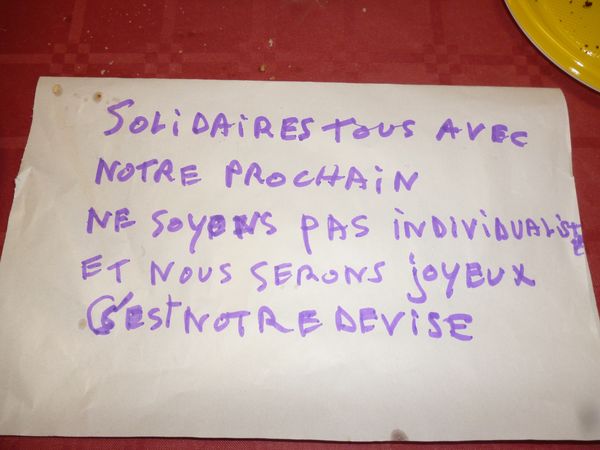 SOLIDAIRES TOUS AVEC
NOTRE PROCHAIN
NE SOYONS PAS INDIVIDUALISTE
ET NOUS SERONS JOYEUX
C'EST NOTRE DEVISE